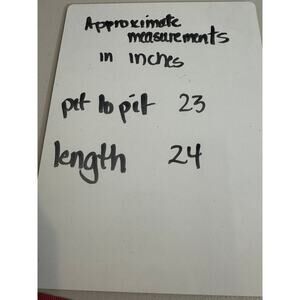 Approximate
measurements
in inches
pit to pit 23
length 24